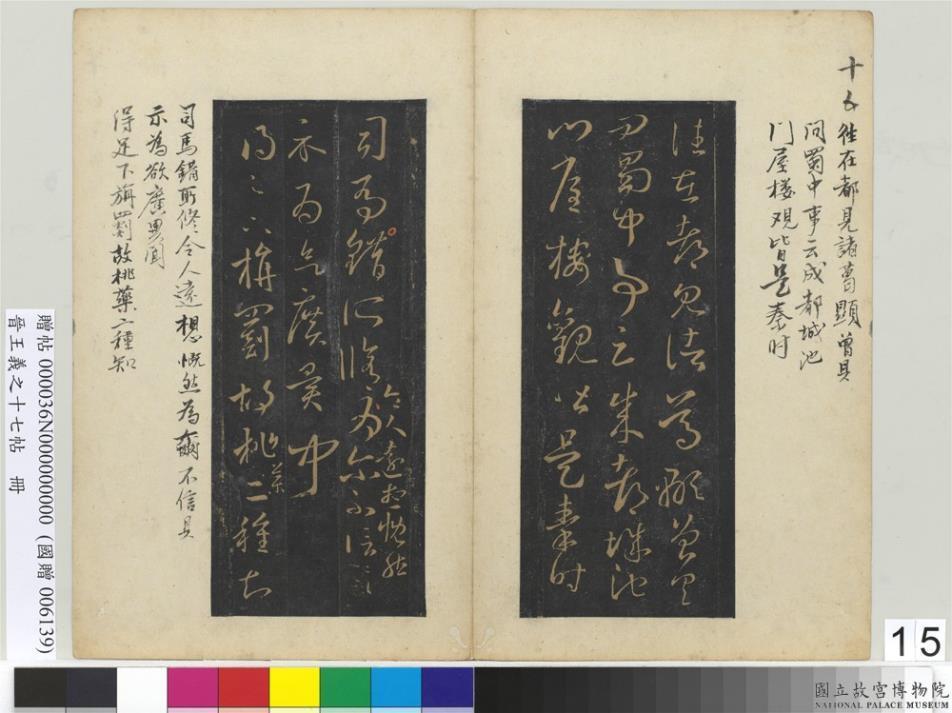 十五
往在都見諸葛顯曾具
問蜀中事云成都城池
門屋樓觀皆是秦時
往在都見諸葛顯曾具
問蜀中事云成都城池
門屋樓觀皆是秦時
司馬錯所修令人遠想慨然
為爾不信具
示為欲廣異聞
得足下旃罽胡桃藥二種知
司馬錯所修令人遠想慨然為爾不信具
示為欲廣異聞
得足下旃罽故桃藥二種知
贈帖 000036N000000000 (國贈 006139)
晉王羲之十七帖 冊
15
國立故宮博物院
NATIONAL PALACE MUSEUM